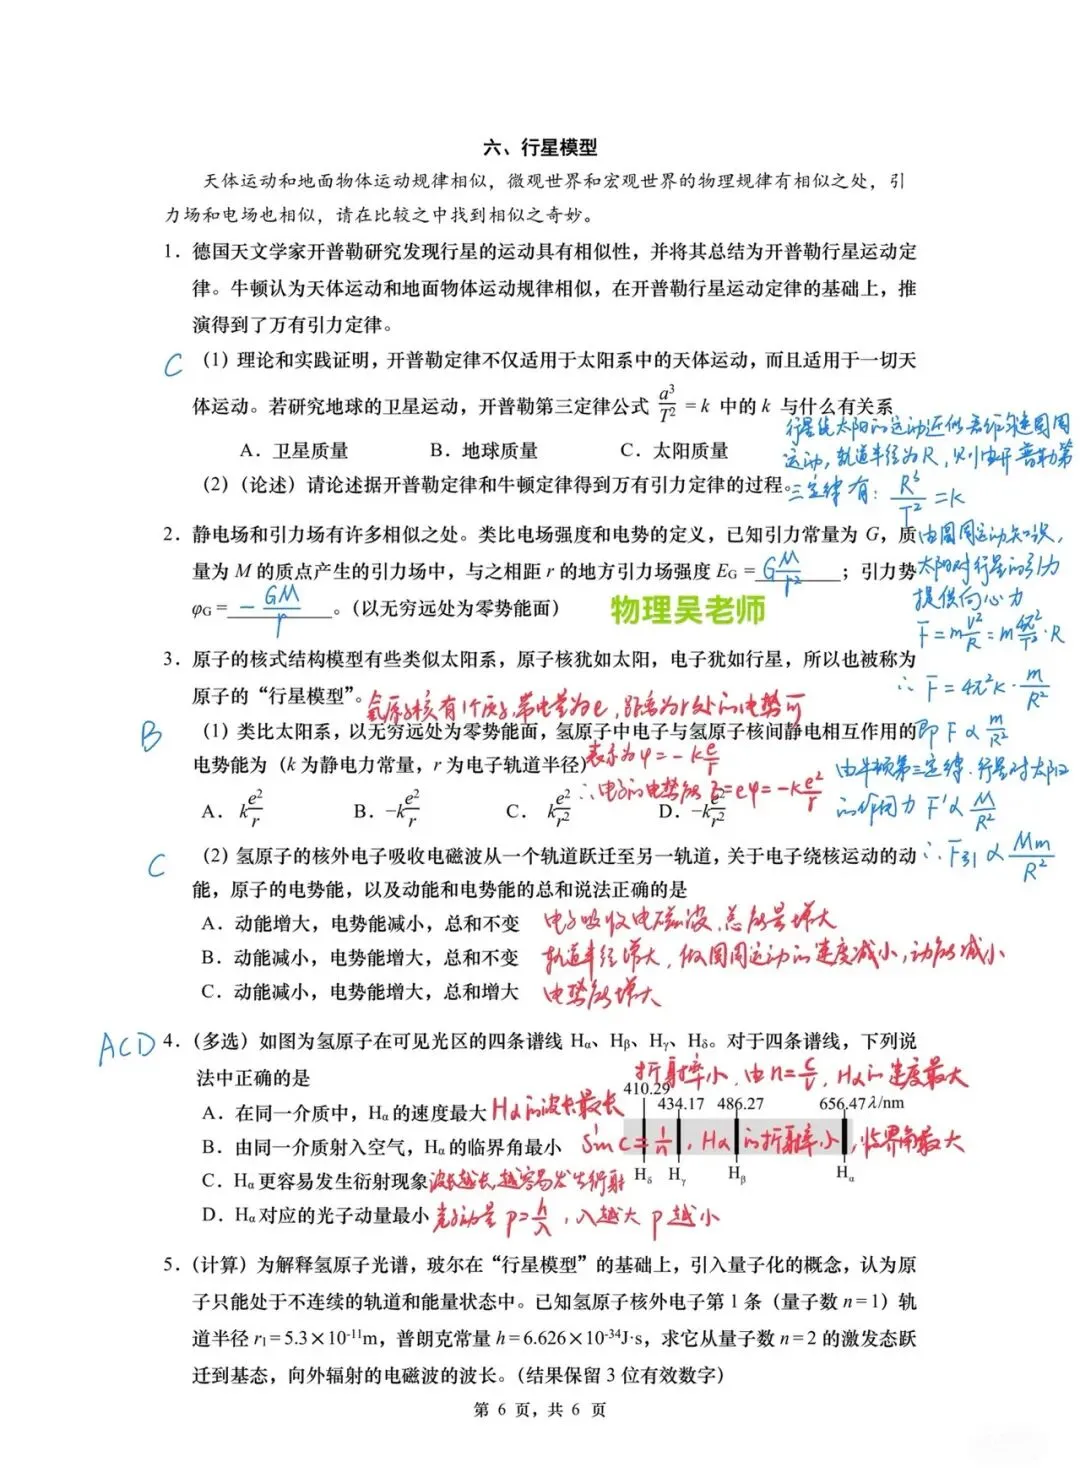 六、行星模型
天体运动和地面物体运动规律相似，微观世界和宏观世界的物理规律有相似之处，引
力场和电场也相似，请在比较之中找到相似之奇妙。
1．德国天文学家开普勒研究发现行星的运动具有相似性，并将其总结为开普勒行星运动定
律。牛顿认为天体运动和地面物体运动规律相似，在开普勒行星运动定律的基础上，推
演得到了万有引力定律。
C （1）理论和实践证明，开普勒定律不仅适用于太阳系中的天体运动，而且适用于一切天
体运动。若研究地球的卫星运动，开普勒第三定律公式 a³/T² = k 中的 k 与什么有关系
A．卫星质量 B．地球质量 C．太阳质量
（2）（论述）请论述据开普勒定律和牛顿定律得到万有引力定律的过程。
行星绕太阳的运动近似看作匀速圆周
运动，轨道半径为R，则由开普勒第
三定律有：R³/T² = k
由圆周运动知识，
太阳对行星的引力
提供向心力
F = m v²/R = m 4π²/T² · R
∴ F = 4π²k · m/R²
即 F ∝ m/R²
由牛顿第三定律，行星对太阳
的作用力 F′ ∝ M/R²
∴ F引 ∝ Mm/R²
2．静电场和引力场有许多相似之处。类比电场强度和电势的定义，已知引力常量为 G，质
量为 M 的质点产生的引力场中，与之相距 r 的地方引力场强度 EG = G M/r² ；引力势
φG = − GM/r 。（以无穷远处为零势能面）
物理吴老师
3．原子的核式结构模型有些类似太阳系，原子核犹如太阳，电子犹如行星，所以也被称为
原子的“行星模型”。
氢原子核有1个质子，带电量为e，距离为r处的电势可
B （1）类比太阳系，以无穷远处为零势能面，氢原子中电子与氢原子核间静电相互作用的
电势能为（k 为静电力常量，r 为电子轨道半径）
表示为 φ = − k e/r
∴ 电子的电势能 = eφ = −k e²/r
A．k e²/r B．−k e²/r C．k e²/r² D．−k e²/r²
C （2）氢原子的核外电子吸收电磁波从一个轨道跃迁至另一轨道，关于电子绕核运动的动
能，原子的电势能，以及动能和电势能的总和说法正确的是
A．动能增大，电势能减小，总和不变 电子吸收电磁波，总能量增大
B．动能减小，电势能增大，总和不变 轨道半径增大，做圆周运动的速度减小，动能减小
C．动能减小，电势能增大，总和增大 电势能增大
ACD 4．（多选）如图为氢原子在可见光区的四条谱线 Hα、Hβ、Hγ、Hδ。对于四条谱线，下列说
法中正确的是
折射率小，由 n = c/v，Hα的速度最大
410.29 434.17 486.27 656.47 λ/nm
A．在同一介质中，Hα 的速度最大 Hα的波长最长
B．由同一介质射入空气，Hα 的临界角最小 sin C = 1/n，Hα的折射率小，临界角最大
Hδ Hγ Hβ Hα
C．Hα 更容易发生衍射现象 波长越长，越容易发生衍射
D．Hα 对应的光子动量最小 光子动量 p = h/λ，λ越大 p越小
5．（计算）为解释氢原子光谱，玻尔在“行星模型”的基础上，引入量子化的概念，认为原
子只能处于不连续的轨道和能量状态中。已知氢原子核外电子第 1 条（量子数 n = 1）轨
道半径 r₁ = 5.3×10⁻¹¹m，普朗克常量 h = 6.626×10⁻³⁴J·s，求它从量子数 n = 2 的激发态跃
迁到基态，向外辐射的电磁波的波长。（结果保留 3 位有效数字）
第 6 页，共 6 页